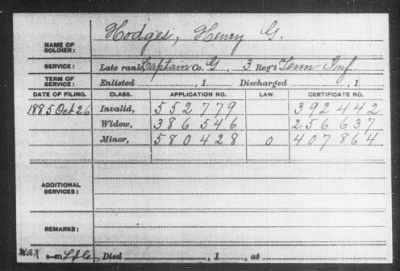 Hodges, Henry G.
NAME OF SOLDIER:
SERVICE: Late rank, Captain Co. G, 3 Reg't Tenn Inf
TERM OF SERVICE: Enlisted , 1 Discharged , 1
DATE OF FILING. CLASS. APPLICATION NO. LAW. CERTIFICATE NO.
1885 Oct 26 Invalid, 552779 392442
Widow, 386546 256637
Minor, 580428 0 407864
ADDITIONAL SERVICES:
REMARKS:
, Died , 1 , at